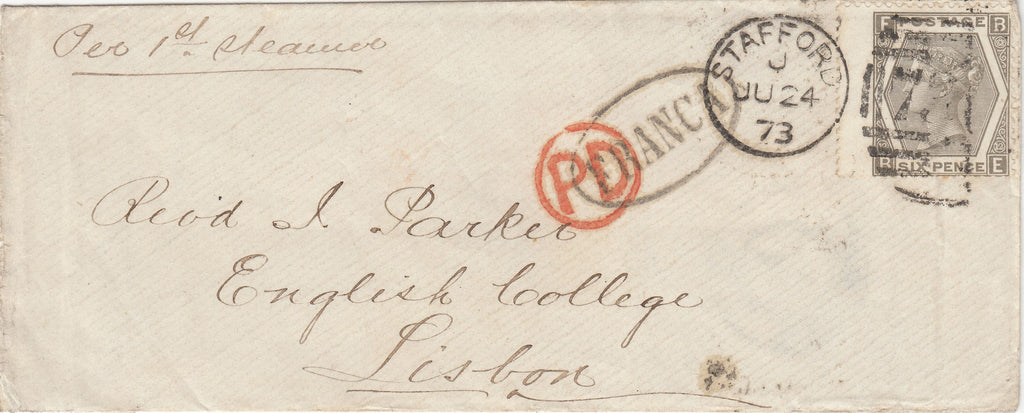 Per 1st steamer
STAFFORD
J
JU 24
73
POSTAGE
SIX PENCE
R E
FRANCA
PD
Rev'd I. Parker
English College
Lisbon